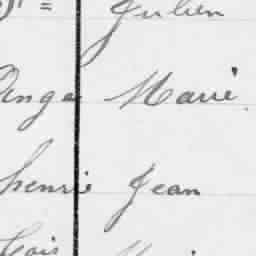 Julien
Ange Marie
henri Jean